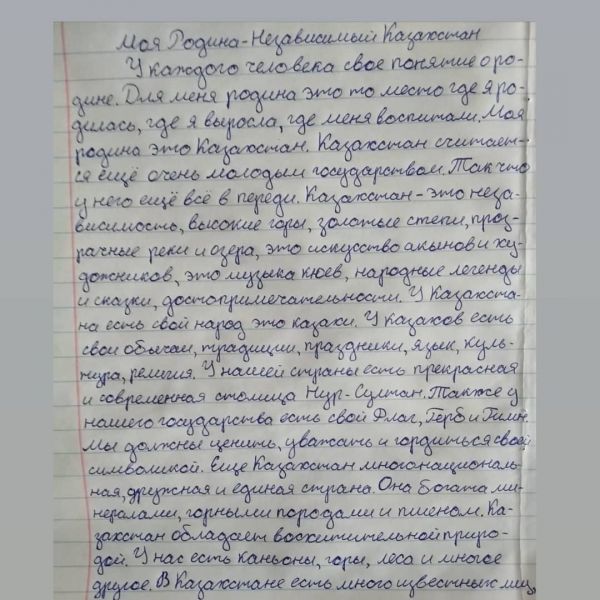 Моя Родина-Независимый Казахстан
У каждого человека свое понятие о ро-
дине. Для меня родина это то место где я ро-
дилась, где я выросла, где меня воспитали. Моя
родина это Казахстан. Казахстан считает-
ся ещё очень молодым государством. Так что
у него ещё всё в переди. Казахстан - это неза-
висимость, высокие горы, золотые степи, проз-
рачные реки и озера, это искусство акынов и ху-
дожников, это музыка кюев, народные легенды
и сказки, достопримечательности. У Казахста-
на есть свой народ это казахи. У казахов есть
свои обычаи, традиции, праздники, язык, куль-
тура, религия. У нашей страны есть прекрасная
и современная столица Нур-Султан. Также у
нашего государства есть свой Флаг, Герб и Гимн.
Мы должны ценить, уважать и гордиться своей
символикой. Еще Казахстан многонациональ-
ная, дружная и единая страна. Она богата ми-
нералами, горными породами и пшеном. Ка-
захстан обладает восхитительной приро-
дой. У нас есть каньоны, горы, леса и многое
другое. В Казахстане есть много известных лиц,